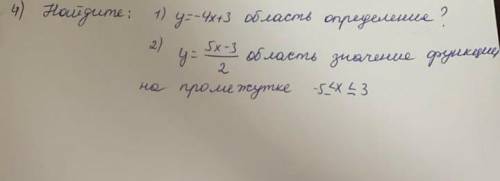 4) Найдите: 1) y=-4x+3 область определение?
2) y= 5x-3/2 область значение функции
на промежутке -5≤x≤3